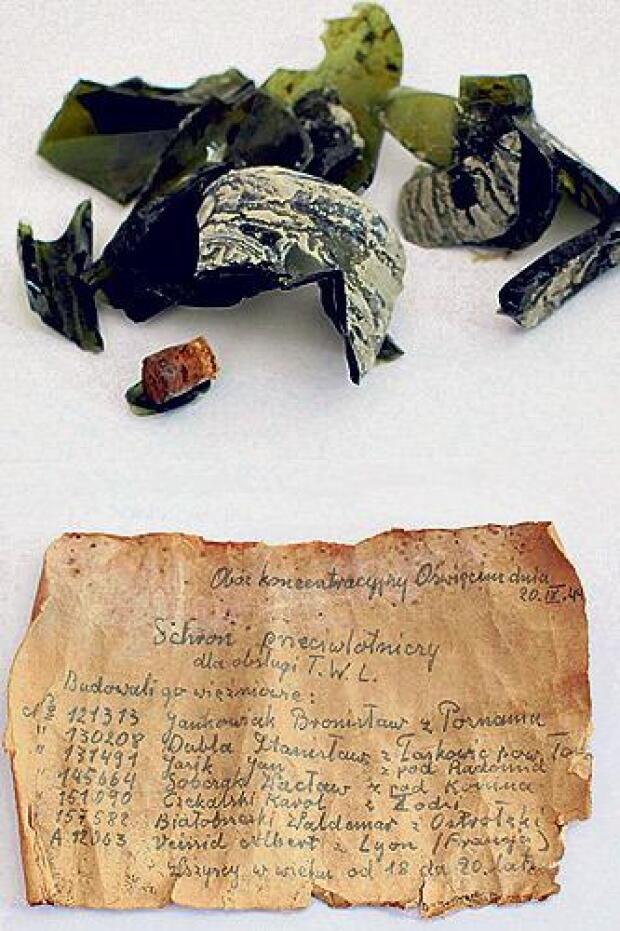 Obóz koncentracyjny Oświęcim dnia
20.IX.4
Schron przeciwlotniczy
dla obsługi T.W.L.
Budowali go więźniowie:
No 121313 Jankowiak Bronisław z Poznania
" 130208 Dubla Stanisław z Łaskowic pow.
" 131491 Jasik Jan z pod Radomia
" 145664 Sobczak Wacław z pod Konina
" 151090 Czekalski Karol z Łodzi
" 157582 Białobrzeski Waldemar z Ostrołęki
A 12063 Veissid Albert z Lyon (Francja)
Wszyscy w wieku od 18 do 20 lat